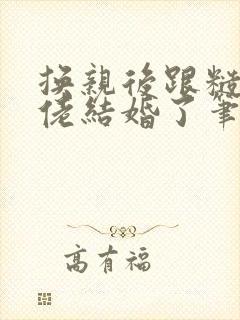 換親後跟糙
佬結婚了 筆
高有福